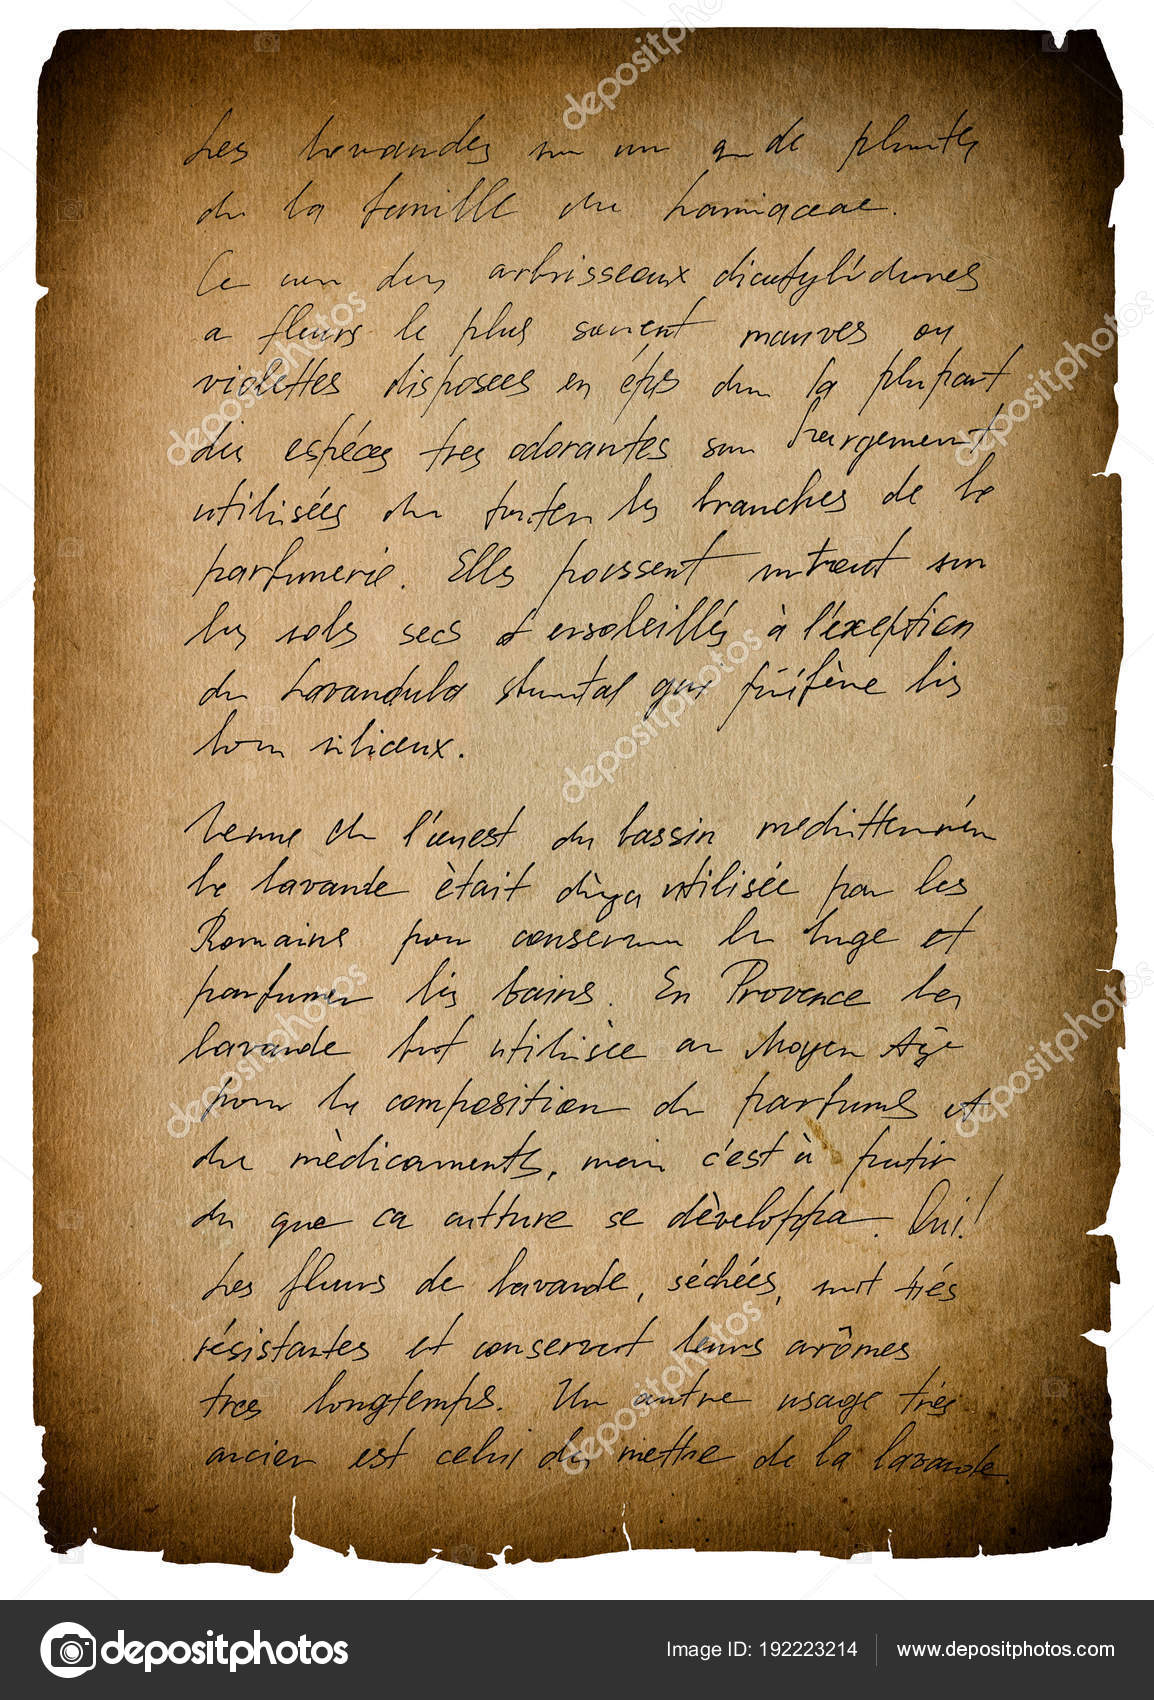 Les lavandes de plantes
de la famille du Lamiaceae.
Ce arbrisseaux dicotylédones
a fleurs le plus souvent mauves ou
violettes disposees en épis la plupart
espéces tres odorantes largement
utilisées les branches de la
parfumerie. Elles poussent surtout sur
les sols secs et ensoleillés à l'éxeption
du Lavandula qui les
siliceux.
Venue de l'ouest du bassin
la lavande ètait dèja utilisée par les
Romains pour conserver le linge et
parfumer les bains. En Provence la
lavande fut utilisèe au Moyen Age
pour la composition de parfums et
de mèdicaments, mais c'est à partir
du que ca culture se dèveloppa. Oui!
Les fleurs de lavande, séchées, sont trés
résistantes et conservent leurs arômes
tres longtemps. Un autre usage trés
ancien est celui de mettre de la lavande.
depositphotos
depositphotos
depositphotos
depositphotos
depositphotos
depositphotos
depositphotos
depositphotos
depositphotos Image ID: 192223214 www.depositphotos.com